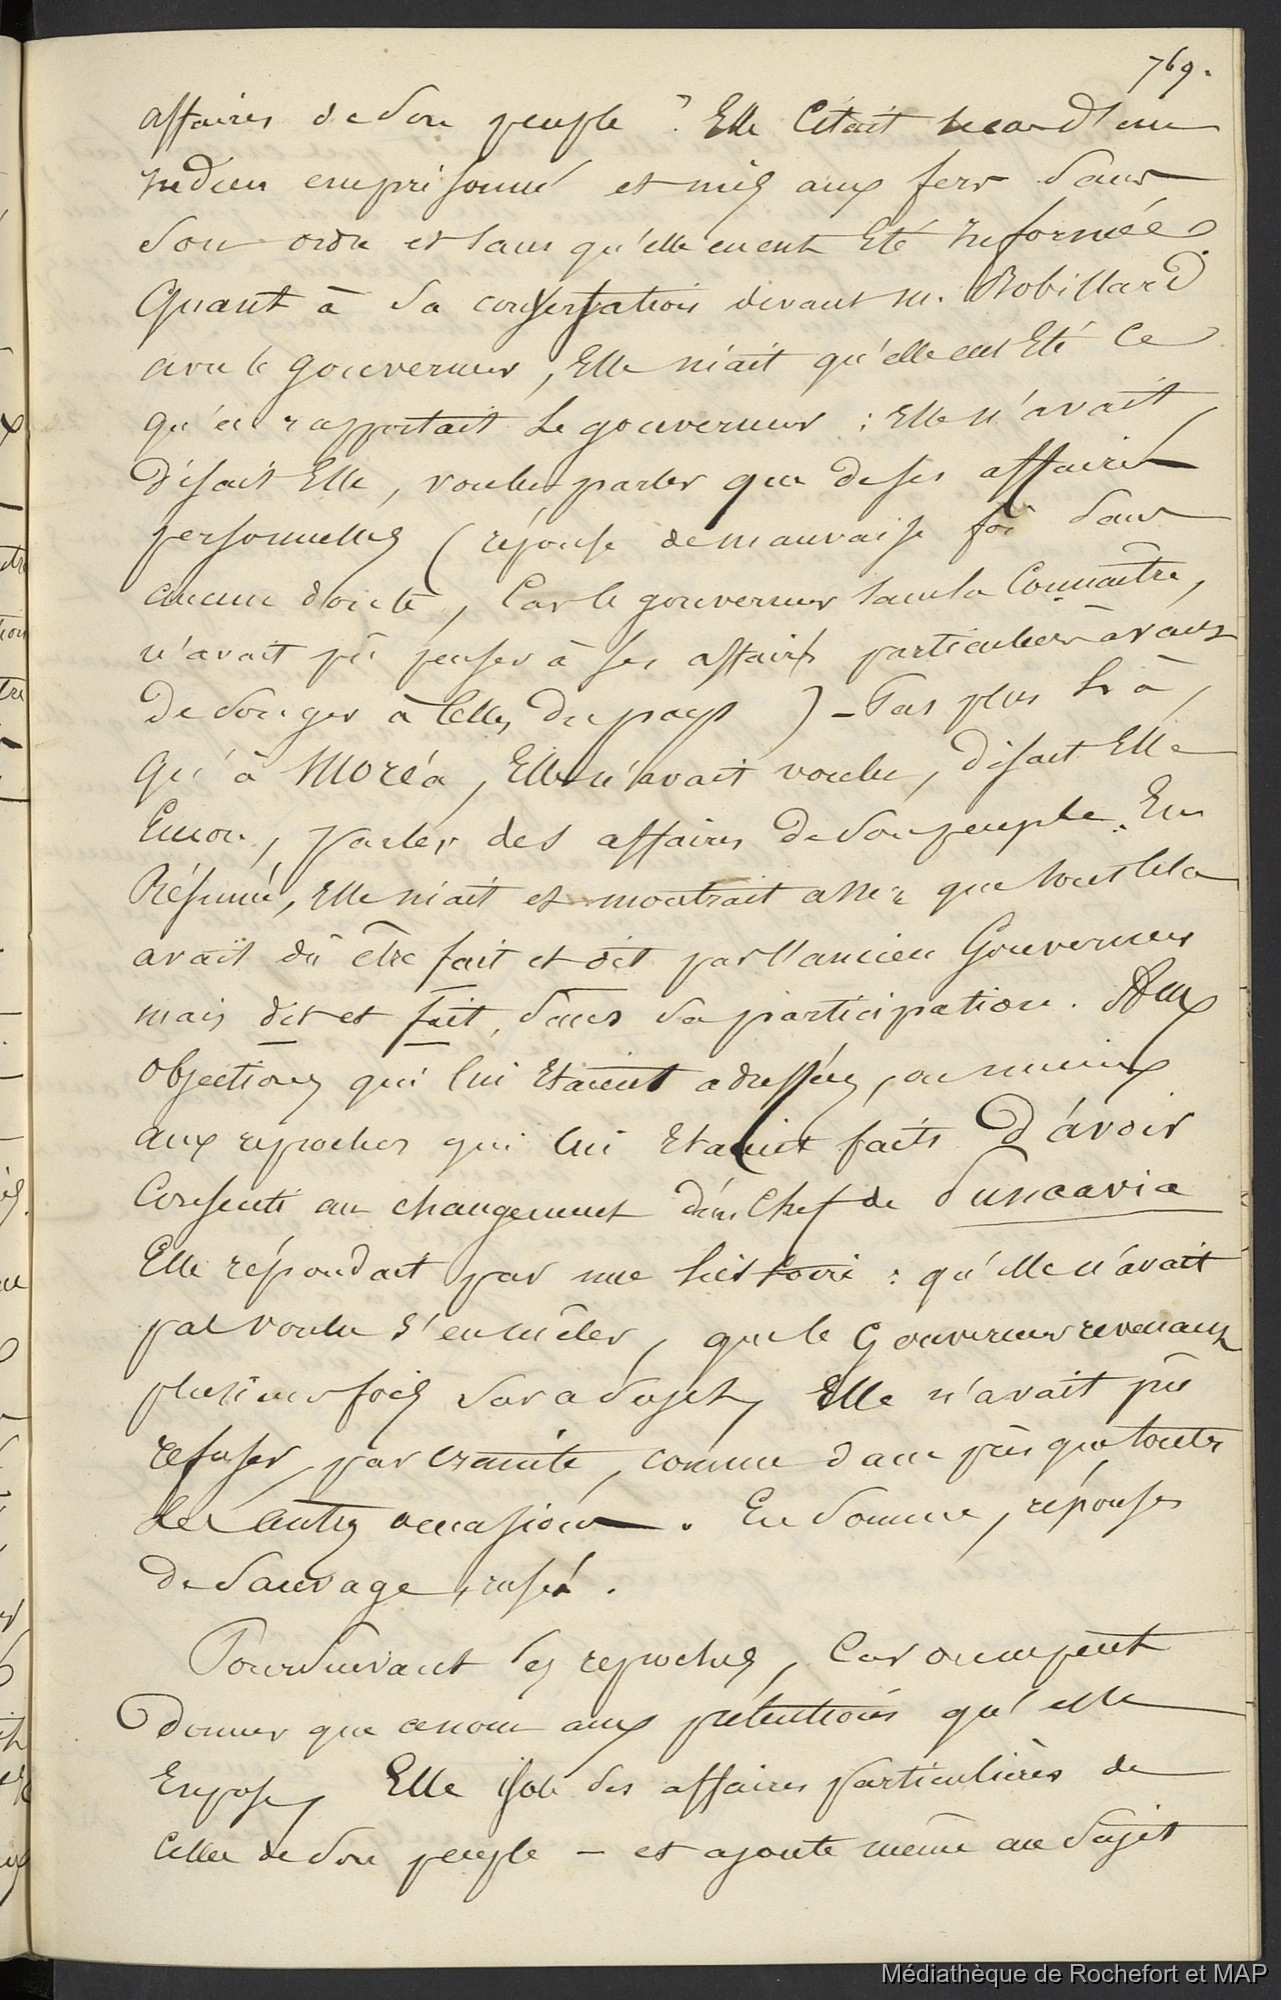 769.
affaires de son peuple ? Elle citait le cas d'un
indien emprisonné et mis aux fers sans
son ordre et sans qu'elle en eut été informée.
Quant à sa conversation devant M. Robillard
avec le gouverneur, Elle niait qu'elle eut été ce
qu'en rapportait le gouverneur ; Elle n'avait,
disait Elle, voulu parler que de ses affaires
personnelles (réponse de mauvaise foi sans
aucun doute, car le gouverneur sans la connaître,
n'avait pû penser à ses affaires particulières avant
de songer à celles du pays ) – Pas plus là,
qu'à Moréa, Elle n'avait voulu, disait Elle
Encore, parler des affaires de son peuple. En
Résumé, Elle niait et montrait assez que tout cela
avait dû être fait et dit par l'ancien Gouverneur
mais dit et fait, sans sa participation. Aux
objections qui lui étaient adressées, ou mieux
aux reproches qui lui étaient faits d'avoir
consenti au changement d'un chef de Punaavia
Elle répondait par une histoire : qu'elle n'avait
pas voulu s'en mêler, que le Gouverneur revenant
plusieurs fois sur ce sujet, Elle n'avait pû
refuser, par crainte, comme dans presque toutes
les autres occasions. En somme, réponses
de sauvage, rusé.
Poursuivant ses reproches, car on ne peut
donner que ce nom aux prétentions qu'elle
Expose, Elle isole ses affaires particulières de
celles de son peuple – et ajoute même au sujet
Médiathèque de Rochefort et MAP